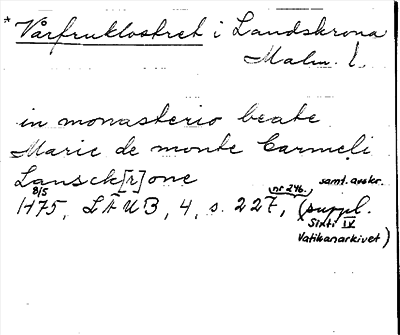 * Vårfruklostret i Landskrona
Malm. l.
in monasterio beate
Marie de monte Carmeli
Lansck[r]one
8/5 nr 246. samt. avskr.
1475, LÄUB, 4, s. 227, (suppl.
Sixti IV
Vatikanarkivet)